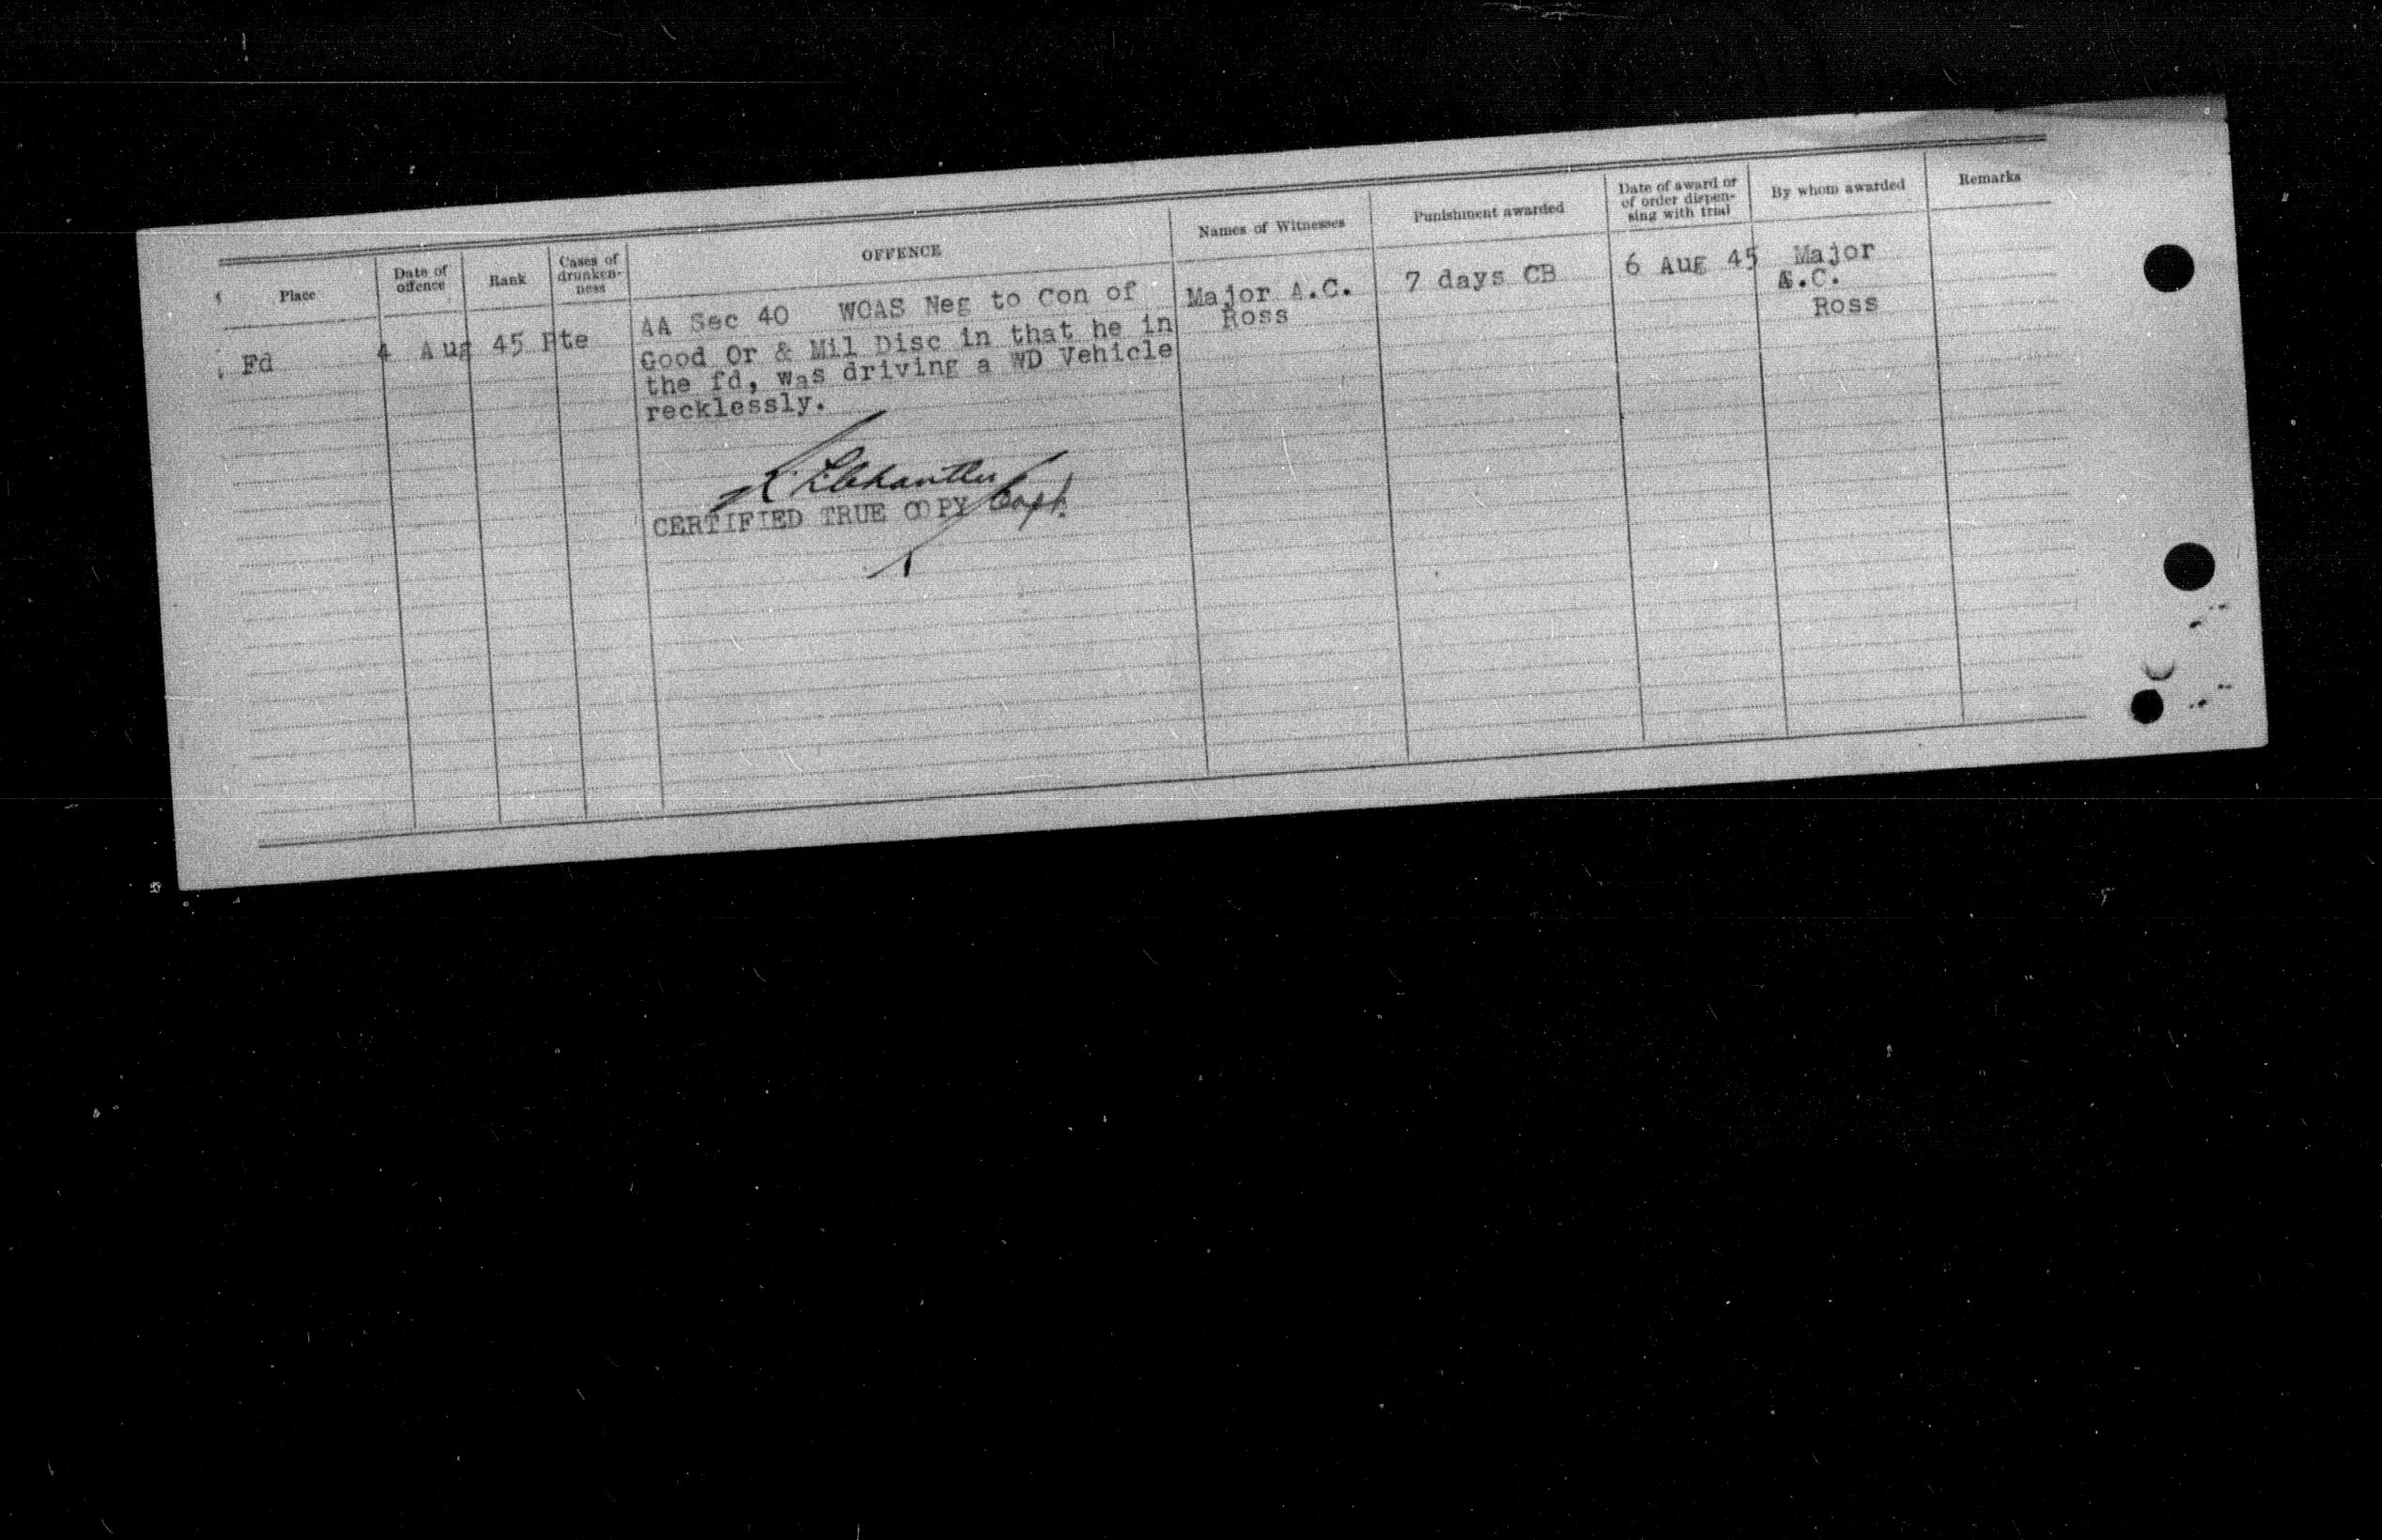 Place
Date of
offence
Rank
Cases of
drunken-
ness
OFFENCE
Names of Witnesses
Punishment awarded
Date of award or
of order dispen-
sing with trial
By whom awarded
Remarks
Fd
4 Aug 45
Pte
AA Sec 40 WOAS Neg to Con of
Good Or & Mil Disc in that he in
the fd, was driving a WD Vehicle
recklessly.
Major A.C.
Ross
7 days CB
6 Aug 45
Major
A.C.
Ross
Capt.
CERTIFIED TRUE COPY